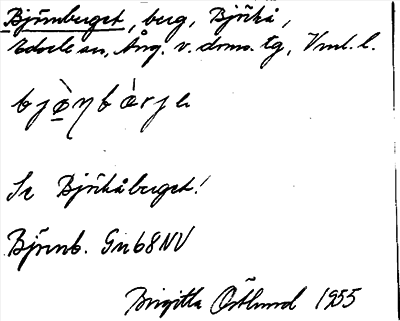 Björnberget, berg, Björkå,
Edsele sn, Ång. v. doms. tg, Vml. l.
bjø̀ɳbàrjə
Se Björkåberget!
Björnb. Gn68NV
Birgitta Östlund 1955